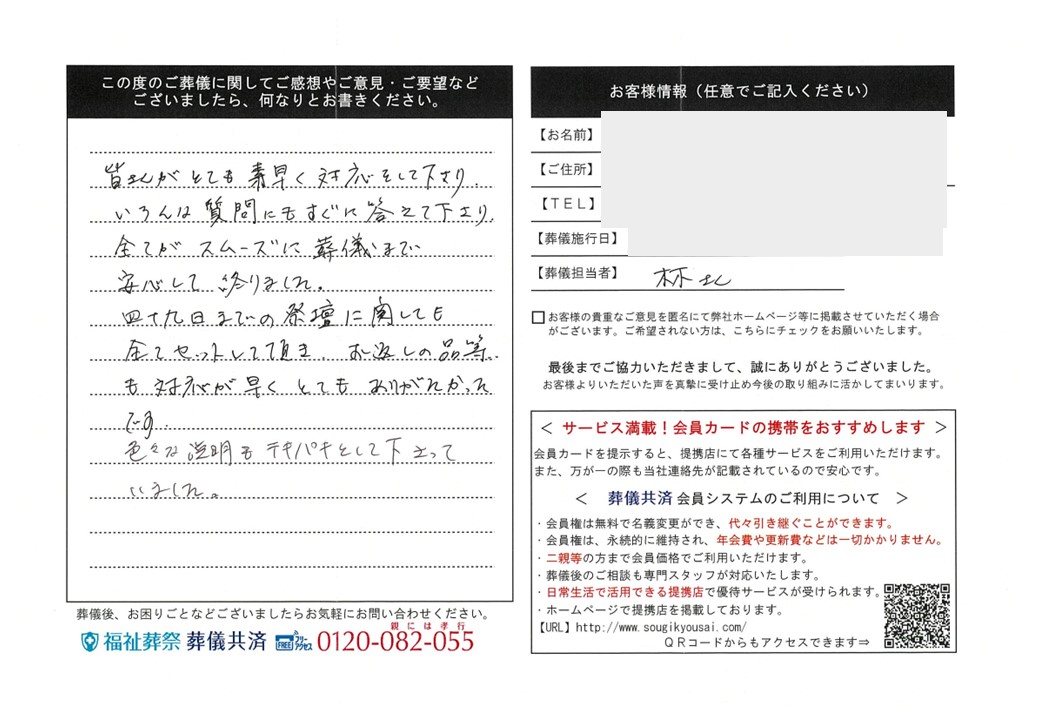 この度のご葬儀に関してご感想やご意見・ご要望など
ございましたら、何なりとお書きください。
皆さんがとても素早く対応をして下さり、
いろんな質問にもすぐに答えて下さり、
全てがスムーズに葬儀まで
安心して終りました。
四十九日までの祭壇に関しても
全てセットして頂き お返しの品等、
も対応が早くとてもありがたかった
です。
色々な説明もテキパキとして下さって
いました。
葬儀後、お困りごとなどございましたらお気軽にお問い合わせください。
福祉葬祭 葬儀共済 FREE フリーアクセス 親には孝行 0120-082-055
お客様情報（任意でご記入ください）
【お名前】
【ご住所】
【ＴＥＬ】
【葬儀施行日】
【葬儀担当者】 林さん
□お客様の貴重なご意見を匿名にて弊社ホームページ等に掲載させていただく場合
がございます。ご希望されない方は、こちらにチェックをお願いいたします。
最後までご協力いただきまして、誠にありがとうございました。
お客様よりいただいた声を真摯に受け止め今後の取り組みに活かしてまいります。
＜ サービス満載！会員カードの携帯をおすすめします ＞
会員カードを提示すると、提携店にて各種サービスをご利用いただけます。
また、万が一の際も当社連絡先が記載されているので安心です。
＜ 葬儀共済 会員システムのご利用について ＞
・会員権は無料で名義変更ができ、代々引き継ぐことができます。
・会員権は、永続的に維持され、年会費や更新費などは一切かかりません。
・二親等の方まで会員価格でご利用いただけます。
・葬儀後のご相談も専門スタッフが対応いたします。
・日常生活で活用できる提携店で優待サービスが受けられます。
・ホームページで提携店を掲載しております。
【URL】http://www.sougikyousai.com/
ＱＲコードからもアクセスできます⇒